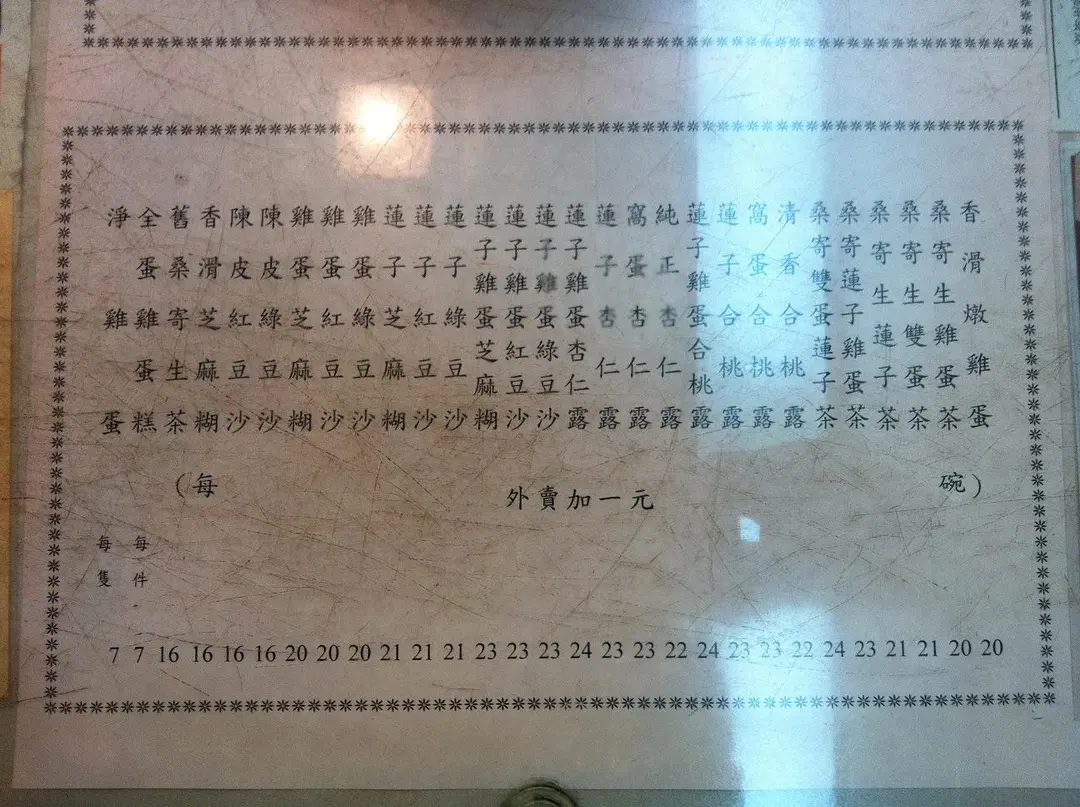 香滑燉雞蛋
桑寄生雞蛋茶
桑寄生雙蛋茶
桑寄生蓮子茶
桑寄蓮子雞蛋茶
桑寄雙蛋蓮子茶
清香合桃露
窩蛋合桃露
蓮子合桃露
蓮子雞蛋合桃露
純正杏仁露
窩蛋杏仁露
蓮子杏仁露
蓮子雞蛋杏仁露
蓮子雞蛋綠豆沙
蓮子雞蛋紅豆沙
蓮子雞蛋芝麻糊
蓮子綠豆沙
蓮子紅豆沙
蓮子芝麻糊
雞蛋綠豆沙
雞蛋紅豆沙
雞蛋芝麻糊
陳皮綠豆沙
陳皮紅豆沙
香滑芝麻糊
舊桑寄生茶
全蛋雞蛋糕
淨雞蛋
(每 碗)
外賣加一元
每件
每隻
7 7 16 16 16 16 20 20 20 21 21 21 23 23 23 24 23 23 22 24 23 23 22 24 23 21 21 20 20